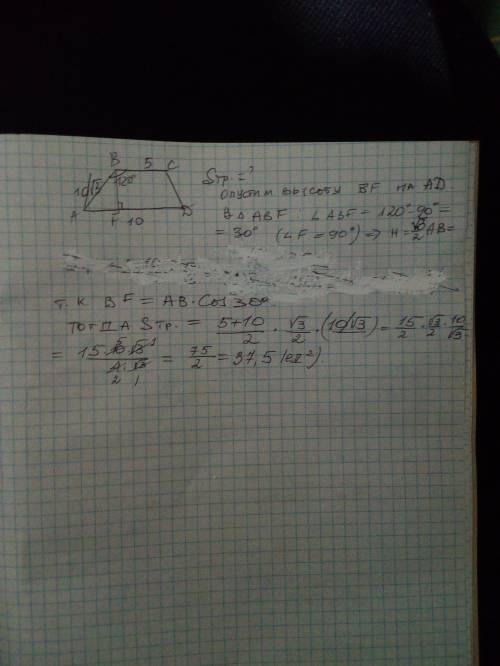 B 5 C
10/√3 120°
A F 10 D
Sтр. = ?
опустим высоту BF на AD.
В Δ ABF: ∠ABF = 120°-90° =
= 30° (∠F = 90°) ⇒ H = √3/2 AB =
т.к BF = AB·Cos 30°
тогда Sтр. = 5+10/2 · √3/2 · (10/√3) = 15/2 · √3/2 · 10/√3 =
= 15·10·√3/4·√3 = 75/2 = 37,5 (ед²).
2 1